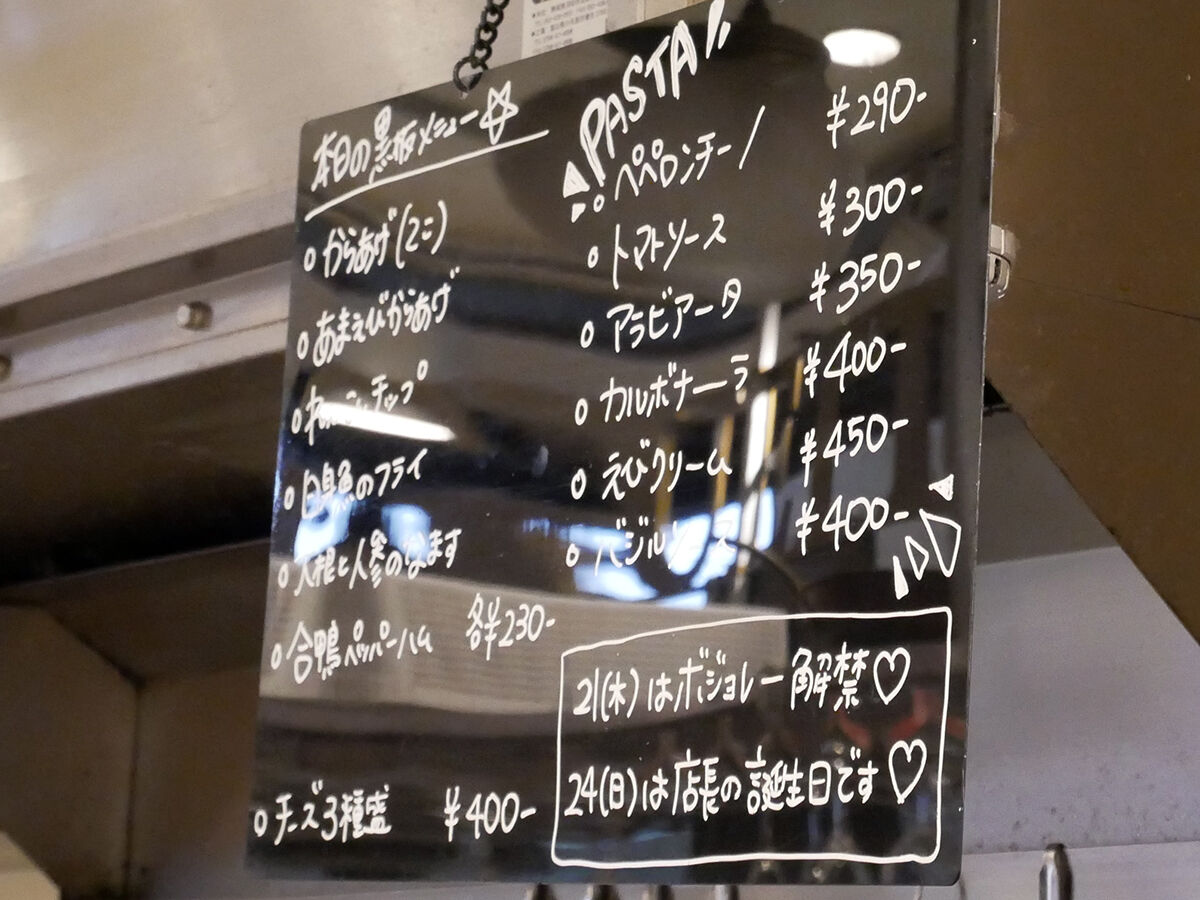 本日の黒板メニュー☆
○からあげ(2コ)
○あまえびからあげ
チップ
○白身魚のフライ
○大根と人参のなます
○合鴨ペッパーハム 各¥230-
○チーズ3種盛 ¥400-
PASTA!!
○ペペロンチーノ ¥290-
○トマトソース ¥300-
○アラビアータ ¥350-
○カルボナーラ ¥400-
○えびクリーム ¥450-
○バジルソース ¥400-
21(木)はボジョレー解禁♡
24(日)は店長の誕生日です♡